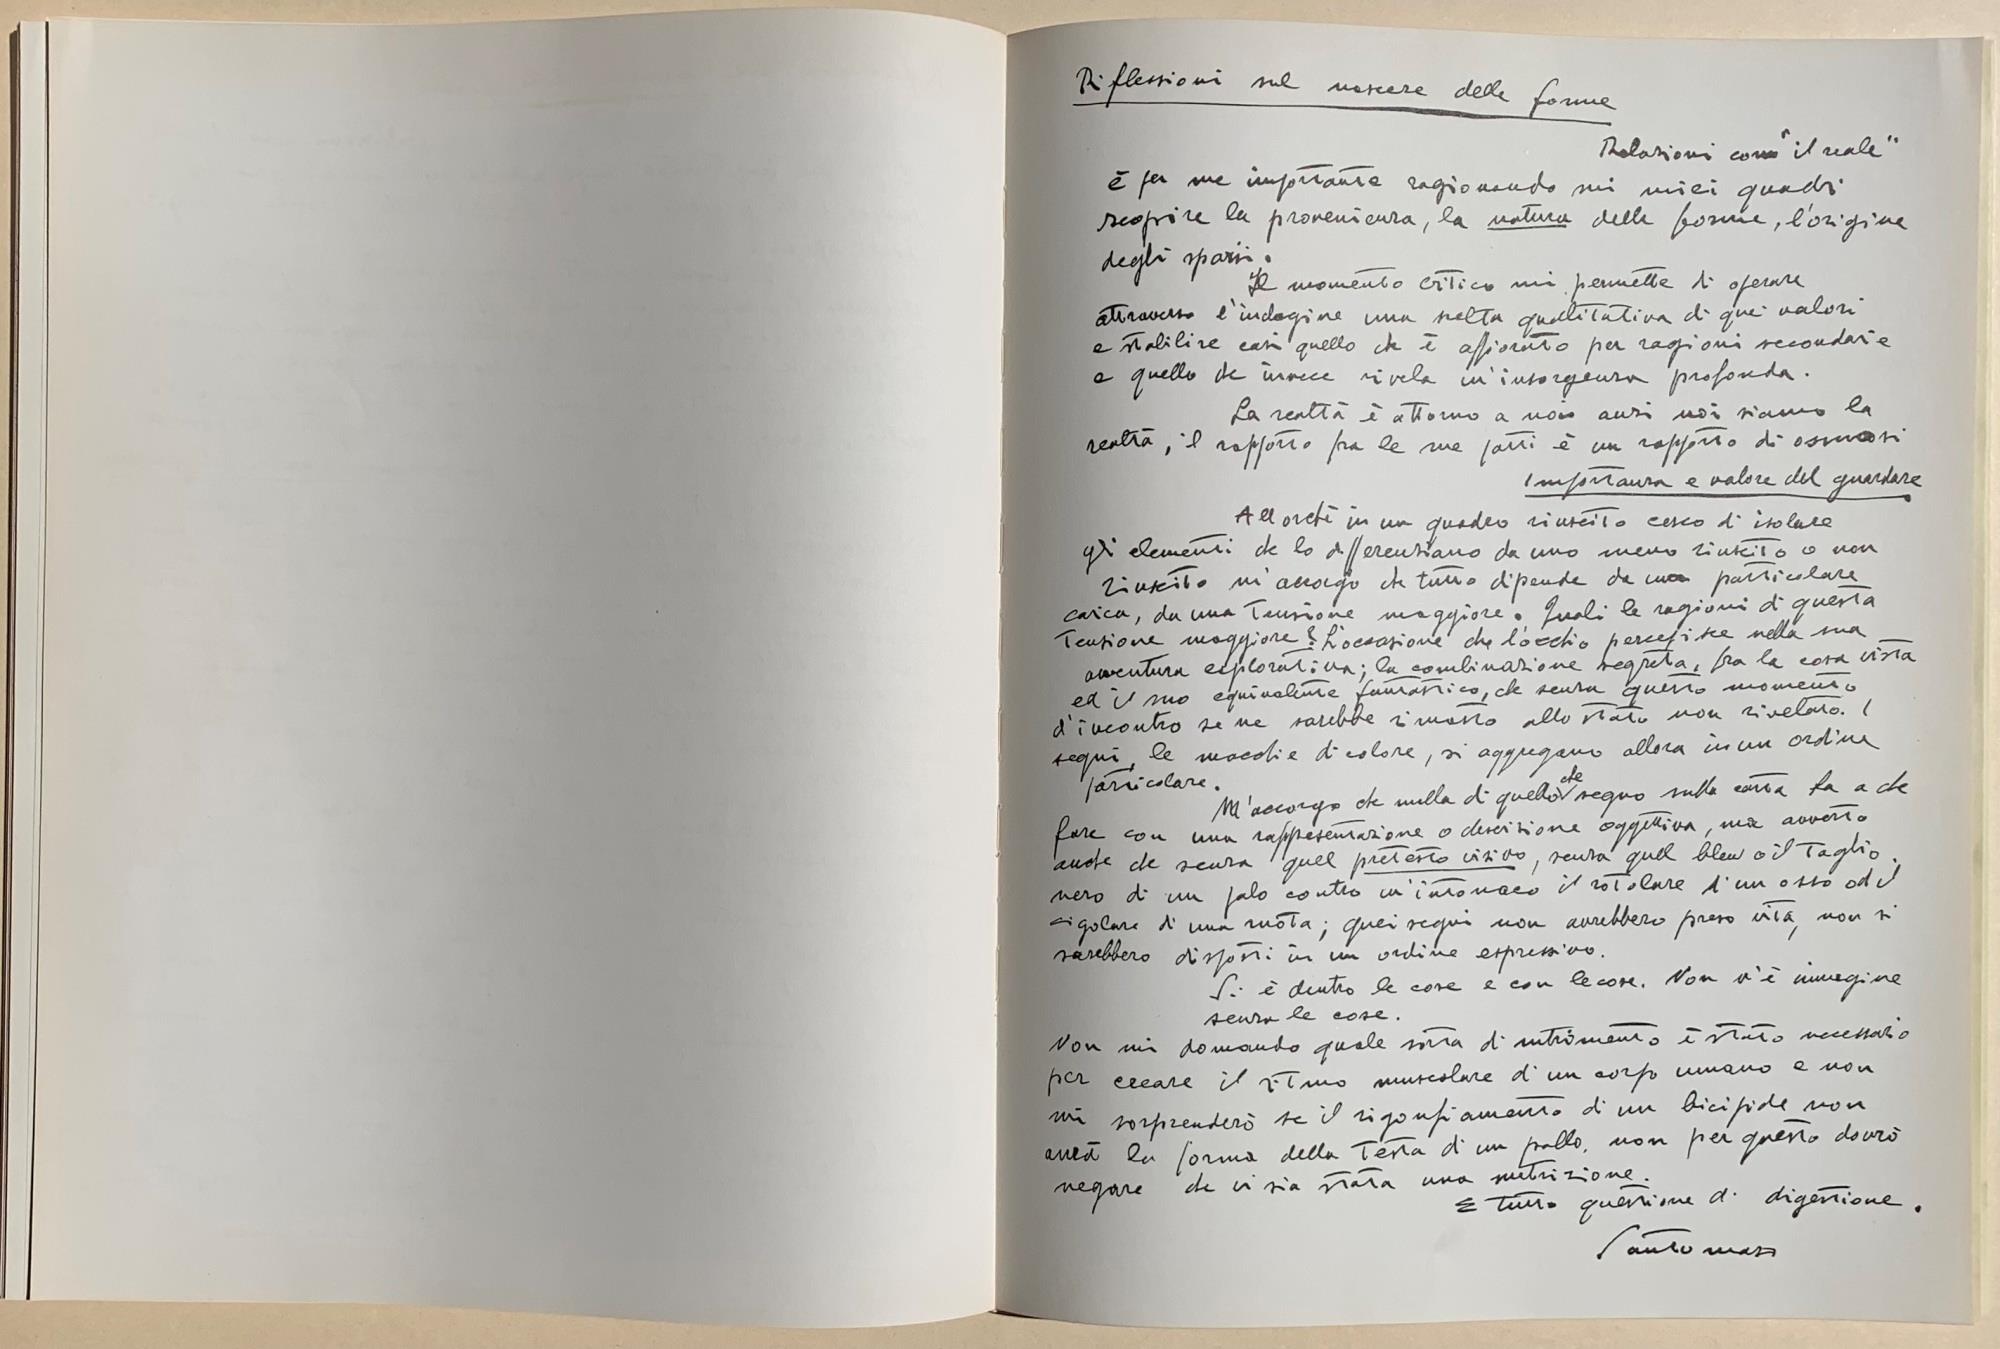 Riflessioni sul nascere delle forme
Relazioni con "il reale"
È per me importante ragionando sui miei quadri
scoprire la provenienza, la natura delle forme, l'origine
degli spazi.
Il momento critico mi permette di operare
attraverso l'indagine una scelta qualitativa di quei valori
e stabilire così quello che è affiorato per ragioni secondarie
e quello che invece rivela un'insorgenza profonda.
La realtà è attorno a noi anzi noi siamo la
realtà, il rapporto fra le due parti è un rapporto di osmosi
Importanza e valore del guardare
Allorché in un quadro riuscito cerco di isolare
gli elementi che lo differenziano da uno meno riuscito o non
riuscito m'accorgo che tutto dipende da una particolare
carica, da una tensione maggiore. Quali le ragioni di questa
tensione maggiore? L'occasione che l'occhio percepisce nella sua
avventura esplorativa; la combinazione segreta, fra la cosa vista
ed il suo equivalente fantastico, che senza questo momento
d'incontro se ne sarebbe rimasto allo stato non rivelato. I
segni, le macchie di colore, si aggregano allora in un ordine
particolare.
M'accorgo che nulla di quello che segno sulla carta ha a che
fare con una rappresentazione o descrizione oggettiva, ma avverto
anche che senza quel pretesto visivo, senza quel bleu o il taglio
nero di un palo contro un'intonaco il rotolare d'un osso od il
cigolare di una ruota; quei segni non avrebbero preso vita, non si
sarebbero disposti in un ordine espressivo.
Si è dentro le cose e con le cose. Non v'è immagine
senza le cose.
Non mi domando quale sorta di nutrimento è stato necessario
per creare il ritmo muscolare di un corpo umano e non
mi sorprenderò se il rigonfiamento di un bicipide non
avrà la forma della testa di un pollo, non per questo dovrò
negare che vi sia stata una nutrizione.
È tutto questione di digestione.
Santomaso